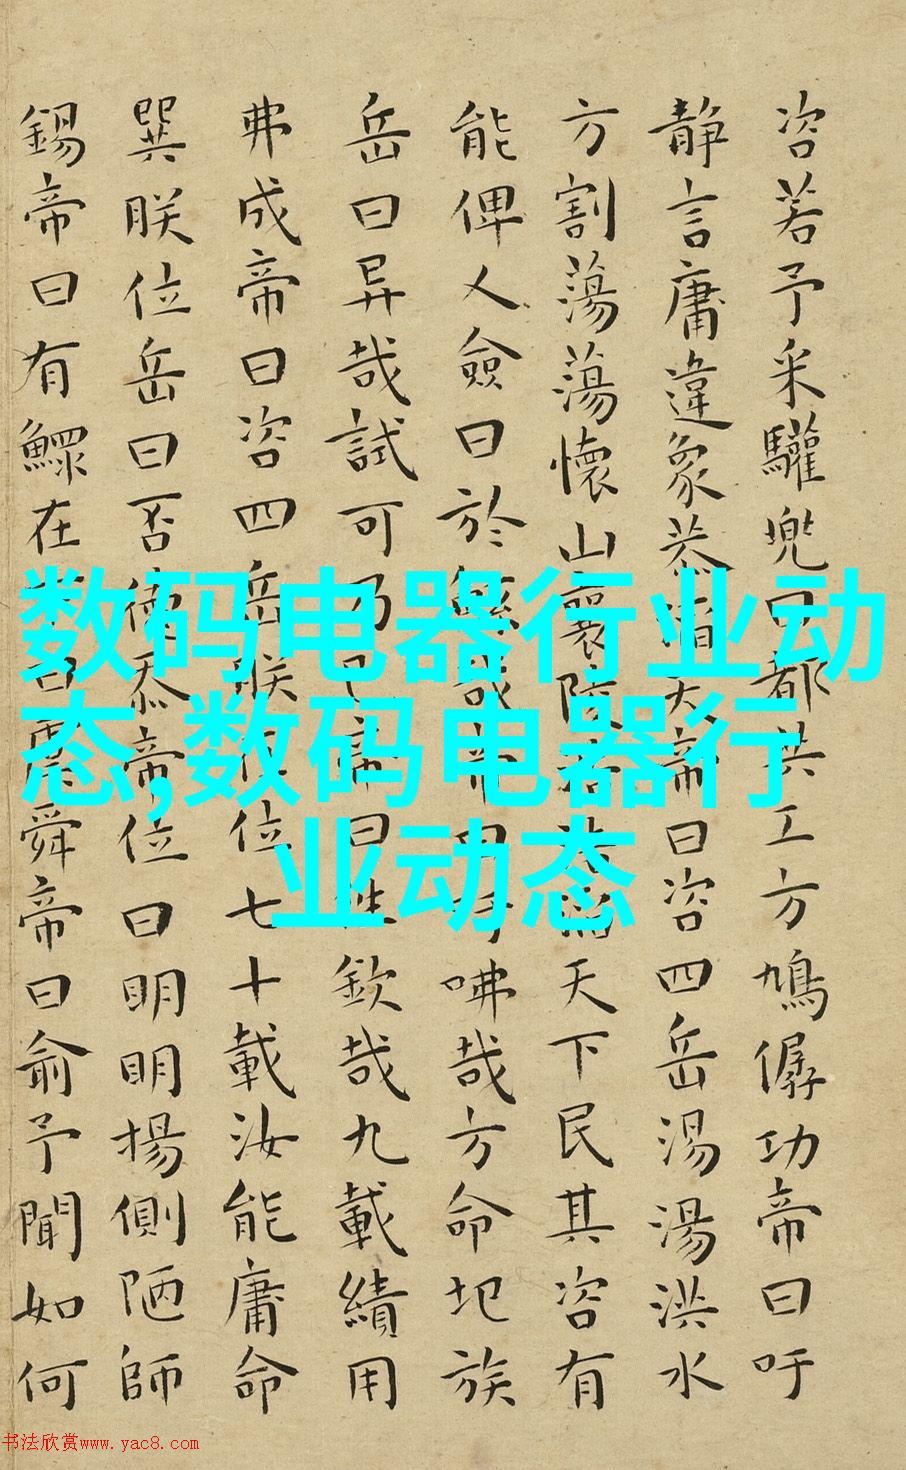 咨若予采驩兜曰都共工方鳩僝功帝曰吁
静言庸違象恭滔天帝曰咨四岳湯湯洪水
方割蕩蕩懷山襄陵天下民其咨有
能俾乂僉曰於鯀哉帝曰吁咈哉方命圮族
岳曰异哉試可乃已帝曰往欽哉九載績用
弗成帝曰咨四岳朕在位七十載汝能庸命
巽朕位岳曰否德忝帝位曰明明揚側陋師
錫帝曰有鰥在下曰虞舜帝曰俞予聞如何
数码电器行业动
态,数码电器行
业动态
书法欣赏www.yac8.com